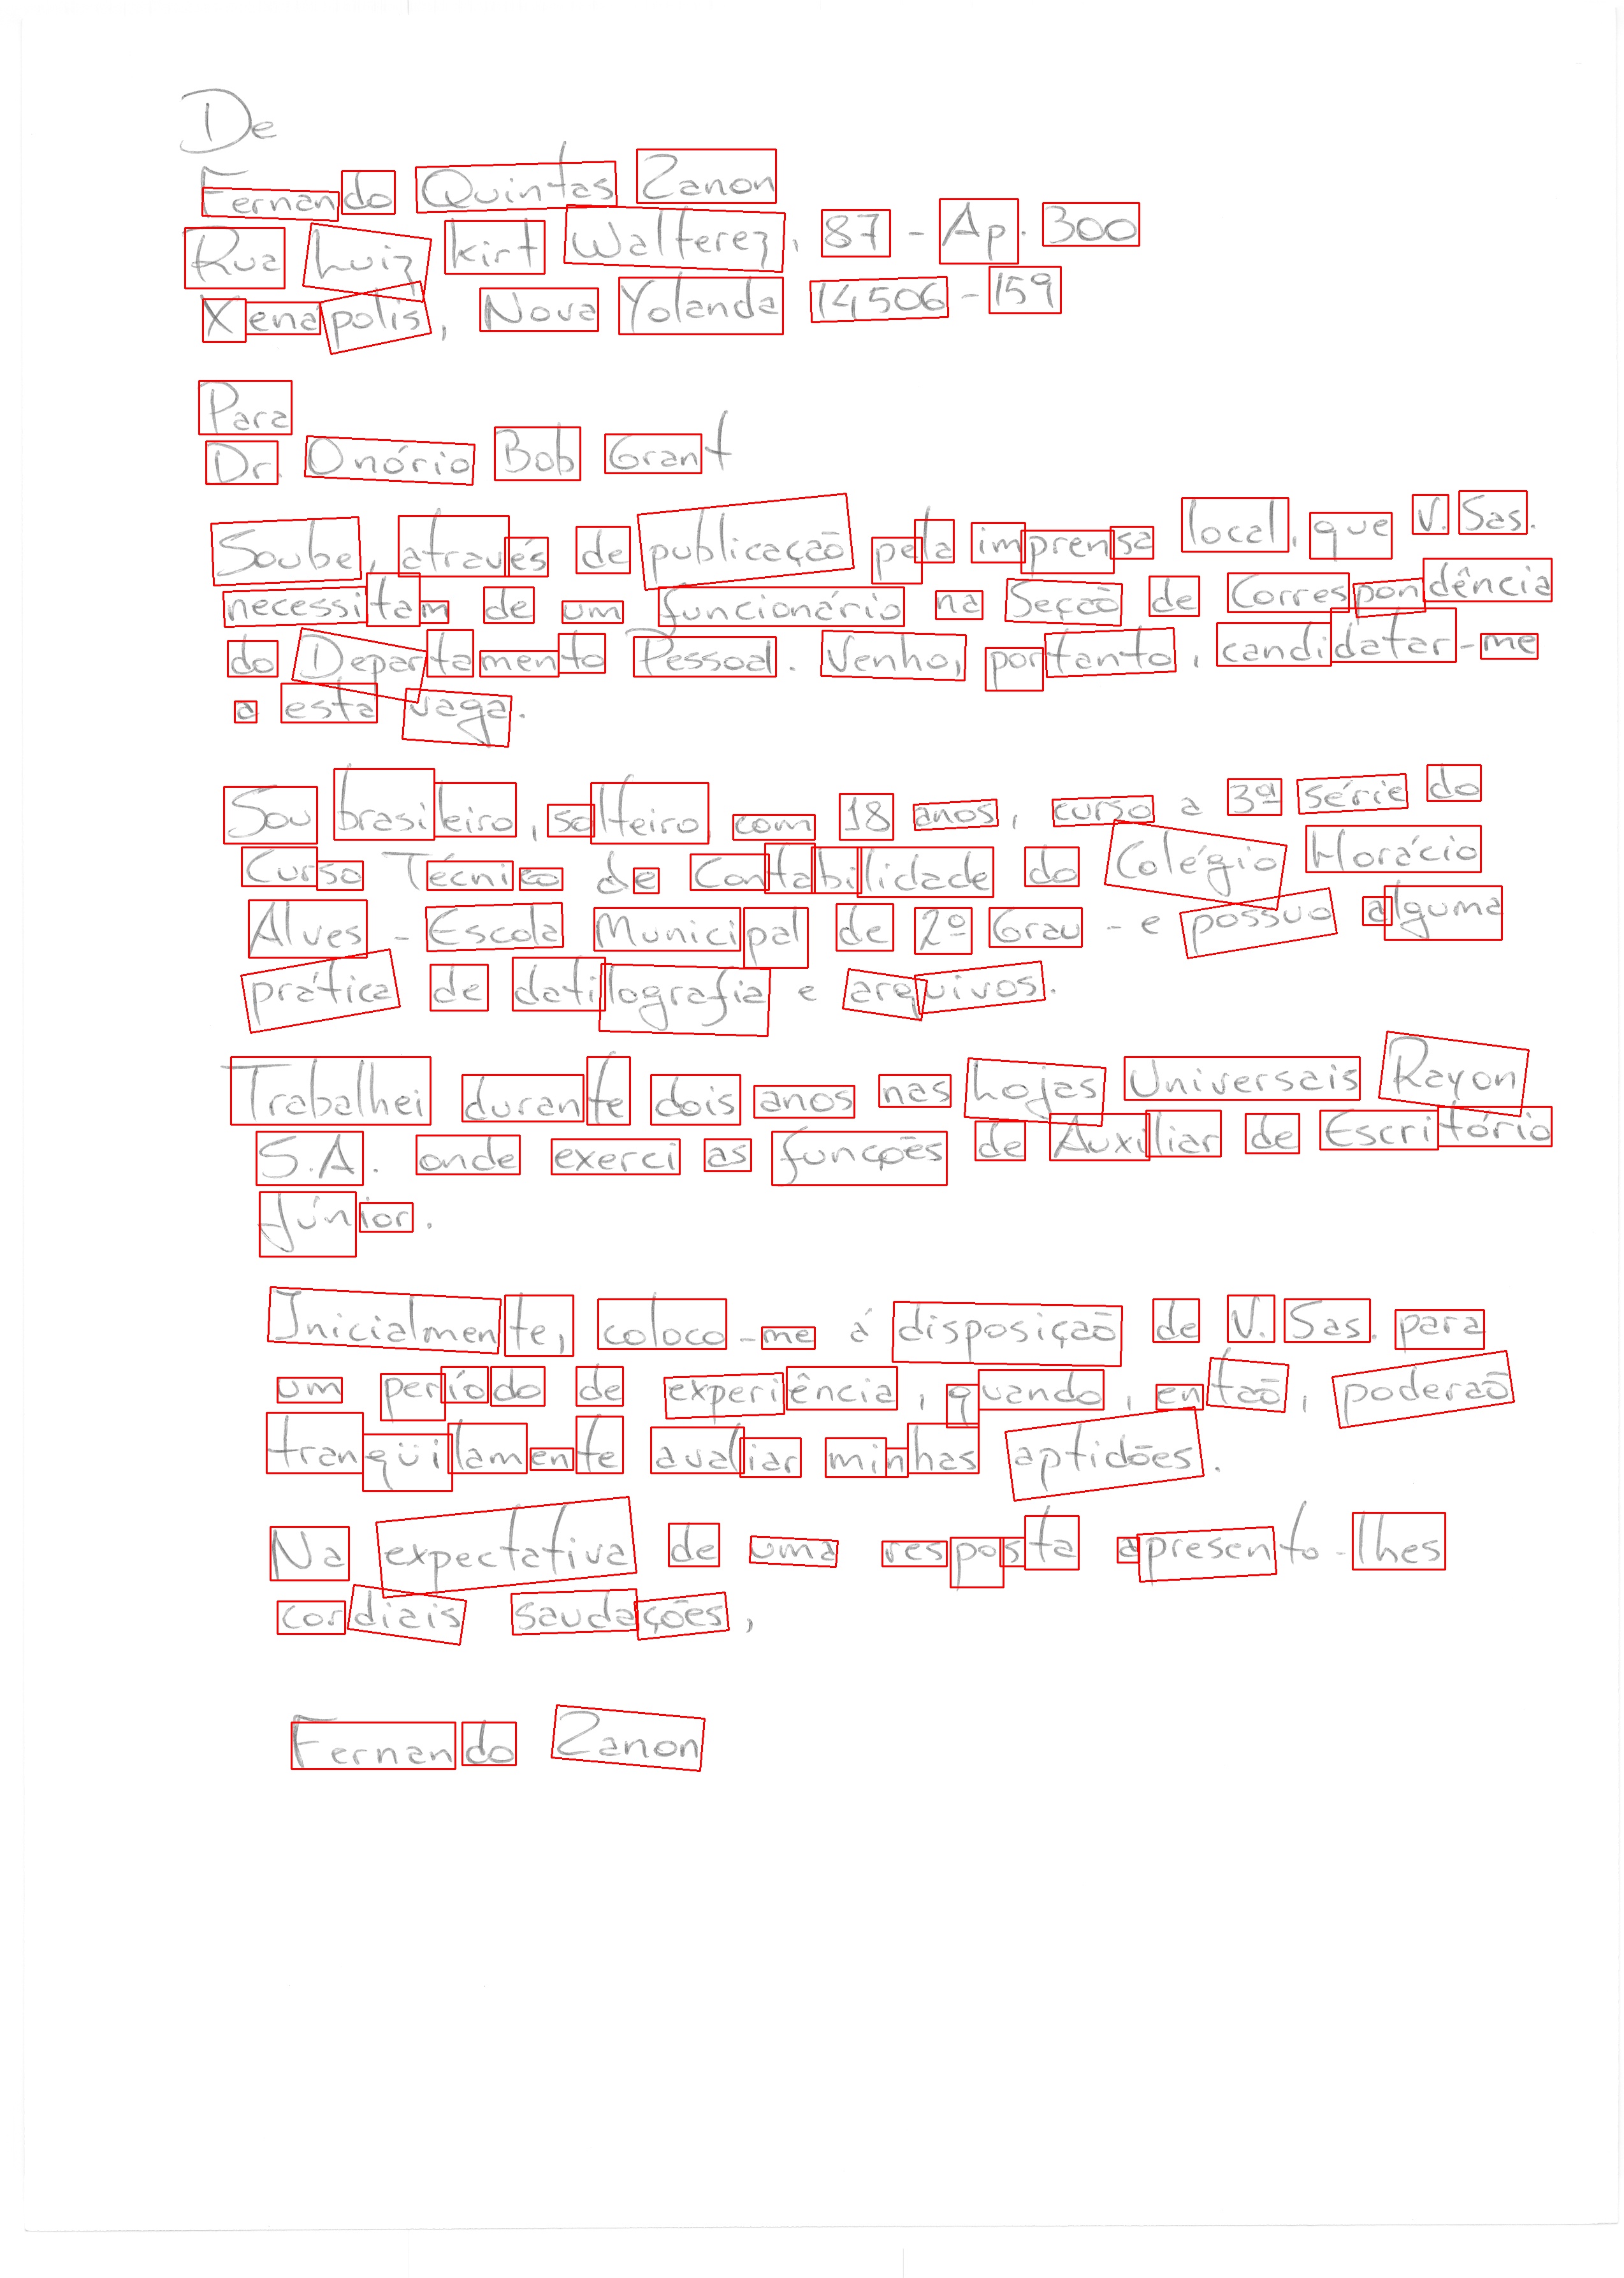 De
Fernando Quintas Zanon
Rua Luiz Kirt Walterez, 87 - Ap. 300
Xenápolis, Nova Yolanda 14506-159
Para
Dr. Onório Bob Grant
Soube, através de publicação pela imprensa local, que V. Sas.
necessitam de um funcionário na Seção de Correspondência
do Departamento Pessoal. Venho, portanto, candidatar-me
a esta vaga.
Sou brasileiro, solteiro com 18 anos, curso a 3ª série do
Curso Técnico de Contabilidade do Colégio Horácio
Alves - Escola Municipal de 2º Grau - e possuo alguma
prática de datilografia e arquivos.
Trabalhei durante dois anos nas Lojas Universais Rayon
S.A. onde exerci as funções de Auxiliar de Escritório
Júnior.
Inicialmente, coloco-me á disposição de V. Sas. para
um período de experiência, quando, então, poderão
tranqüilamente avaliar minhas aptidões.
Na expectativa de uma resposta apresento-lhes
cordiais saudações,
Fernando Zanon